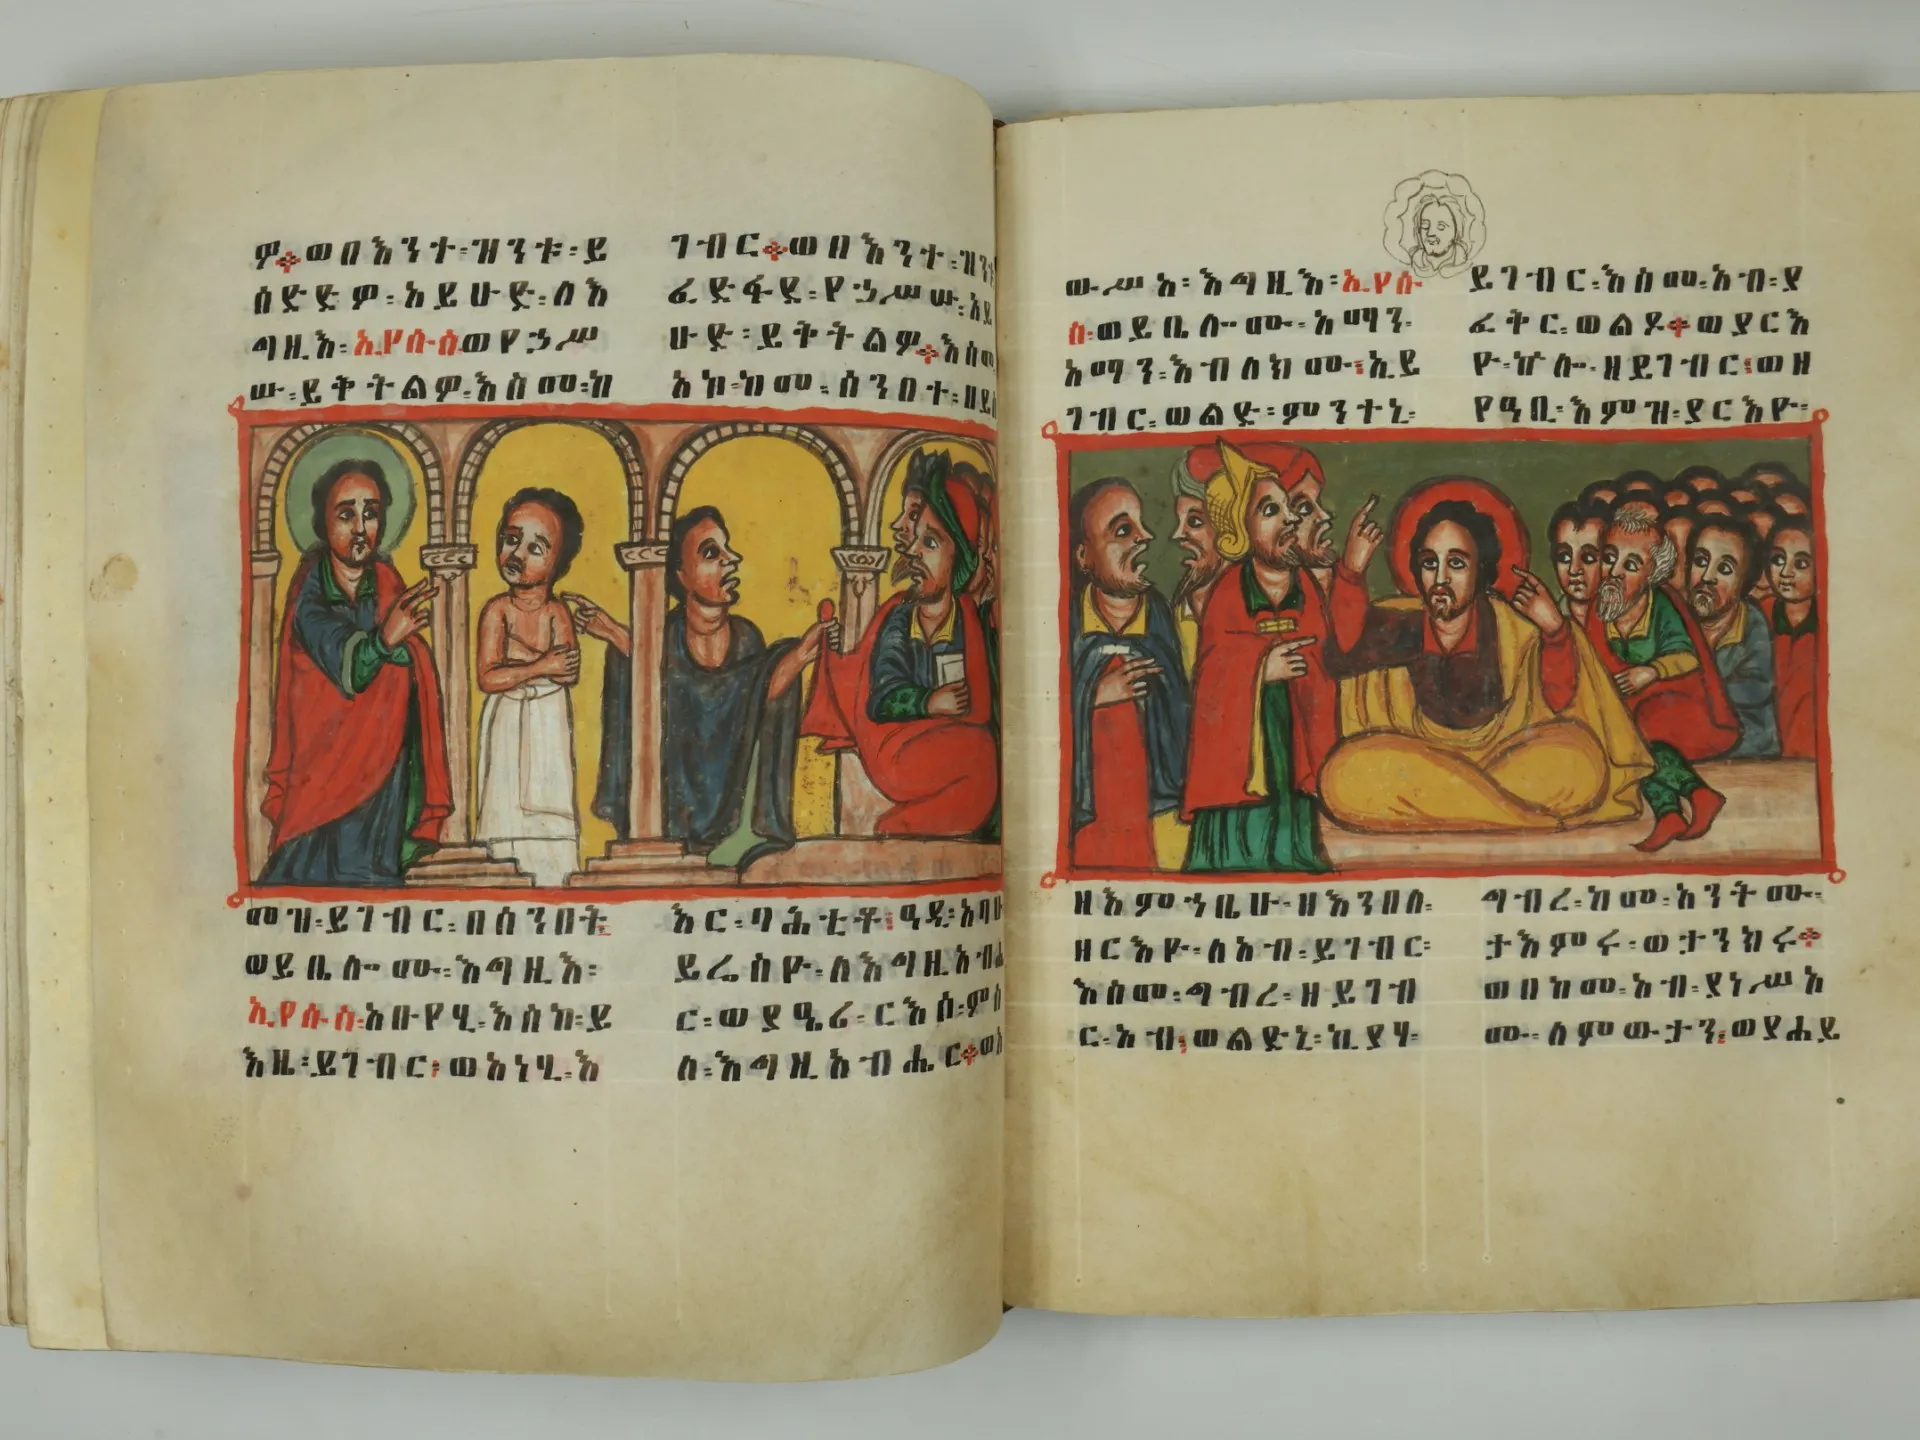 ዎ፨ወበእንተ፡ዝንቱ፡ይ
ሰድድዎ፡አይሁድ፡ለእ
ግዚእ፡ኢየሱስወየኃሥ
ሡ፡ይቅትልዎ፡እስመ፡ከ
መዝ፡ይገብር፡በሰንበት፤
ወይቤሎሙ፡እግዚእ፡
ኢየሱስ፡አቡየሂ፡እስከ፡ይ
እዜ፡ይገብር፤ወአነሂ፡እ
ገብር፨ወበእንተ፡ዝንቱ
ፈድፋደ፡የኃሥሡ፡አይ
ሁድ፡ይቅትልዎ፨እስመ
አኮ፡ከመ፡ሰንበተ፡ዘይስ
እር፡ባሕቲቶ፤ዓዲ፡አባሁ
ይሬስዮ፡ለእግዚአብሔ
ር፡ወያዔሪ፡ርእሰ፡ምስ
ለ፡እግዚአብሔር፨ወአ
ውሥአ፡እግዚእ፡ኢየሱ
ስ፡ወይቤሎሙ፡አማን፡
አማን፡እብለክሙ፤ኢይ
ገብር፡ወልድ፡ምንተኒ፡
ዘእምኀቤሁ፡ዘእንበለ፡
ዘርእዮ፡ለአብ፡ይገብር፡
እስመ፡ግብረ፡ዘይገብ
ር፡አብ፤ወልድኒ፡ኪያሃ፡
ይገብር፡እስመ፡አብ፡ያ
ፈቅር፡ወልዶ፨ወያርእ
ዮ፡ኵሎ፡ዘይገብር፤ወዘ
የዓቢ፡እምዝ፡ያርእዮ፡
ግብረ፡ከመ፡አንትሙ፡
ታእምሩ፡ወታንክሩ፨
ወበከመ፡አብ፡ያነሥአ
ሙ፡ለምውታን፤ወያሐይ